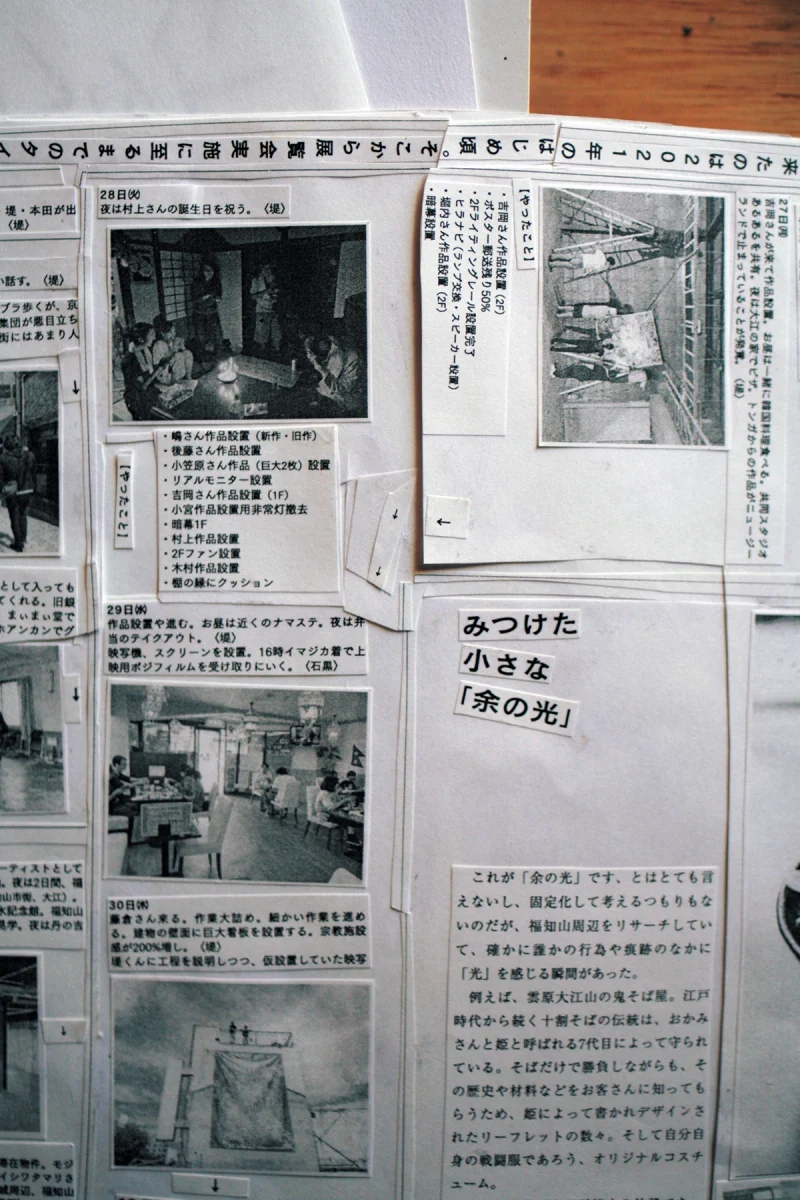 来たのは2021年のはじめ頃。そこから展覧会実施に至るまでのタイ
27日(月)
吉岡さんが来て作品設置。お昼は一緒に韓国料理食べる。共同スタジオ
あるあるを共有。夜は大江の家でピザ。トンガからの作品がニュージー
ランドで止まっていることが発覚。〈堤〉
【やったこと】
・吉岡さん作品設置(2F)
・ポスター郵送残り50%
・2Fライティングレール設置完了
・ヒラナビ(ランプ交換・スピーカー設置)
・堀内さん作品設置(2F)
・暗幕設置
↓
28日(火)
夜は村上さんの誕生日を祝う。〈堤〉
【やったこと】
・嶋さん作品設置(新作・旧作)
・後藤さん作品設置
・小笠原さん作品(巨大2枚)設置
・リアルモニター設置
・吉岡さん作品設置(1F)
・小宮作品設置用非常灯撤去
・暗幕1F
・村上作品設置
・2Fファン設置
・木村作品設置
・棚の縁にクッション
29日(水)
作品設置や進む。お昼は近くのナマステ。夜は弁
当のテイクアウト。〈堤〉
映写機、スクリーンを設置。16時イマジカ着で上
映用ポジフィルムを受け取りにいく。〈石黒〉
30日(木)
藤倉さん来る。作業大詰め。細かい作業を進め
る。建物の壁面に巨大看板を設置する。宗教施設
感が200%増し。〈堤〉
堤くんに工程を説明しつつ、仮設置していた映写
↓
みつけた
小さな
「余の光」
これが「余の光」です、とはとても言
えないし、固定化して考えるつもりもな
いのだが、福知山周辺をリサーチしてい
て、確かに誰かの行為や痕跡のなかに
「光」を感じる瞬間があった。
例えば、雲原大江山の鬼そば屋。江戸
時代から続く十割そばの伝統は、おかみ
さんと姫と呼ばれる7代目によって守られ
ている。そばだけで勝負しながらも、そ
の歴史や材料などをお客さんに知っても
らうため、姫によって書かれデザインさ
れたリーフレットの数々。そして自分自
身の戦闘服であろう、オリジナルコスチ
ューム。
・堤・本田が出
〈堤〉
い話す。〈堤〉
ブラ歩くが、京
集団が悪目立ち
街にはあまり人
↓
として入っても
てくれる。旧銀
まぃまぃ堂で
ホアンカンでグ
↓
ーティストとして
。夜は2日間、福
山市街、大江)。
水記念館。福知山
見学。夜は丹の吉
↓
滞在物件。モジ
イシワタマリさ
城周辺、福知山